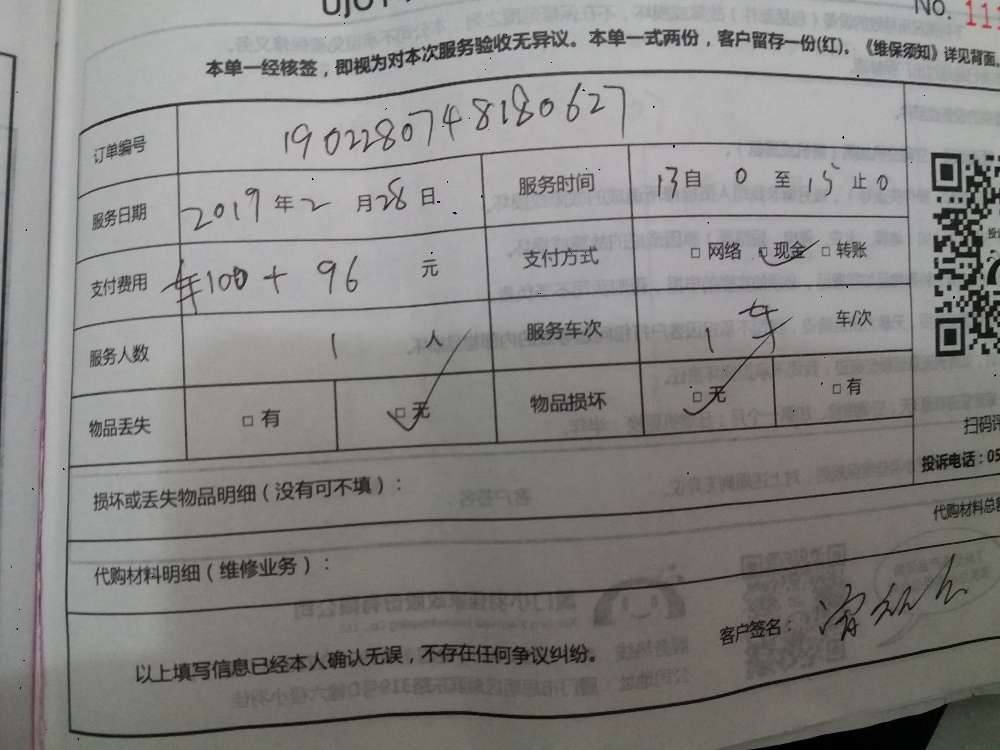 No. 11
本单一经核签，即视为对本次服务验收无异议。本单一式两份，客户留存一份(红)。《维保须知》详见背面。
订单编号 190228074 8180627
服务日期 2019年2月28日 服务时间 13自0至15止0
支付费用 车100+96元 支付方式 □网络 □现金 □转账
服务人数 1人 服务车次 1车 车/次
物品丢失 □有 □无 物品损坏 □无 □有
扫码评
投诉电话：05
损坏或丢失物品明细（没有可不填）：
代购材料总额
代购材料明细（维修业务）：
客户签名：
以上填写信息已经本人确认无误，不存在任何争议纠纷。